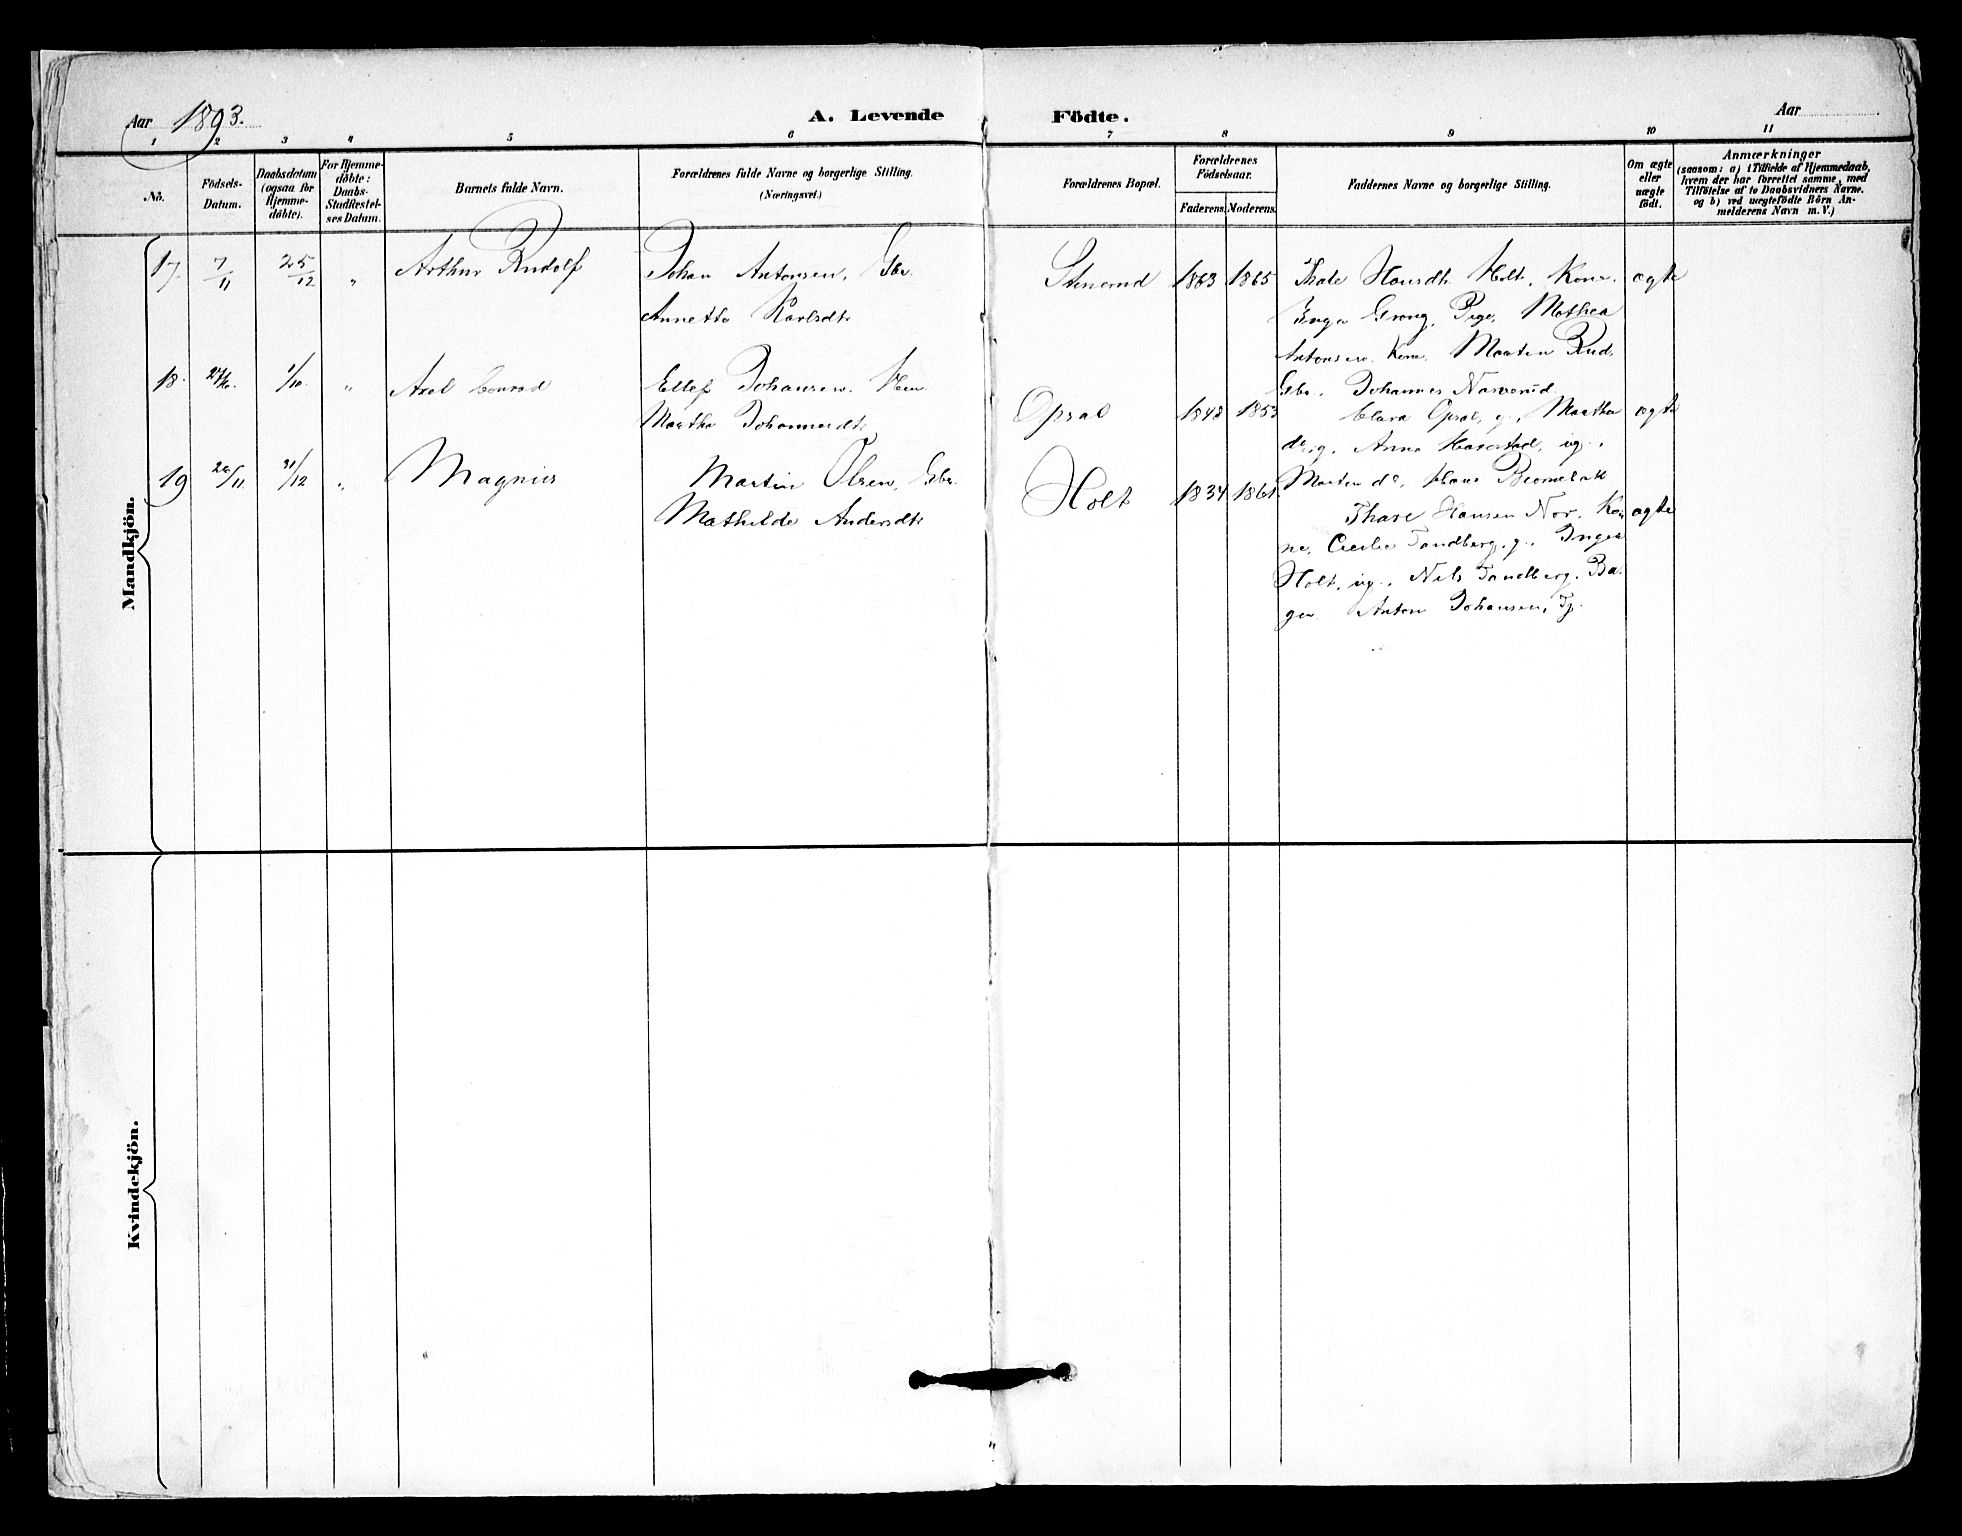 Aar 1893.
A. Levende Födte.
Aar
1 2 3 4 5 6 7 8 9 10 11
No.
Födsels-Datum.
Daabsdatum (ogsaa for Hjemme-döbte).
For Hjemme-döbte: Daabs-Stadfæstel-ses Datum.
Barnets fulde Navn.
Forældrenes fulde Navne og borgerlige Stilling.
(Næringsvei.)
Forældrenes Bopæl.
Forældrenes Födselsaar.
Faderens. Moderens.
Faddernes Navne og borgerlige Stilling.
Om ægte eller uægte födt.
Anmærkninger
(saasom: a) i Tilfælde af Hjemmedaab,
hvem der har forrettet samme, med
Tilföielse af to Daabsvidners Navne.
og b) ved uægtefödte Börn An-
melderens Navn m. V.)
Mandkjön.
17. 7/11 25/12 " Arthur Rudolf Johan Antonsen, Gbr. Stenerud 1863 1865 Thale Hansdtr Holt, Kone. ægte
Annette Karlsdtr Grong, Pige, Mathea
Antonsen. Kone. Maarten Rud.
18. 1/10. " Axel Conrad Ellef Johansen.
Gbr. Johannes
Martha Johannesdtr Opsal 1848 1853 Clara Opsal, g., Martha ægte
Anna ug.,
19 31/12 " Magnus Martin Olsen, Gbr. Holt 1834 1861. Maarten do, Hans
Mathilde Andersdtr Hansen Nor. Ko- ægte
ne. Cecilie Tandberg. g. Inger
Holt, ug., Nils Tandberg. Ba-
ger. Anton Johansen, Tj.
Kvindekjön.